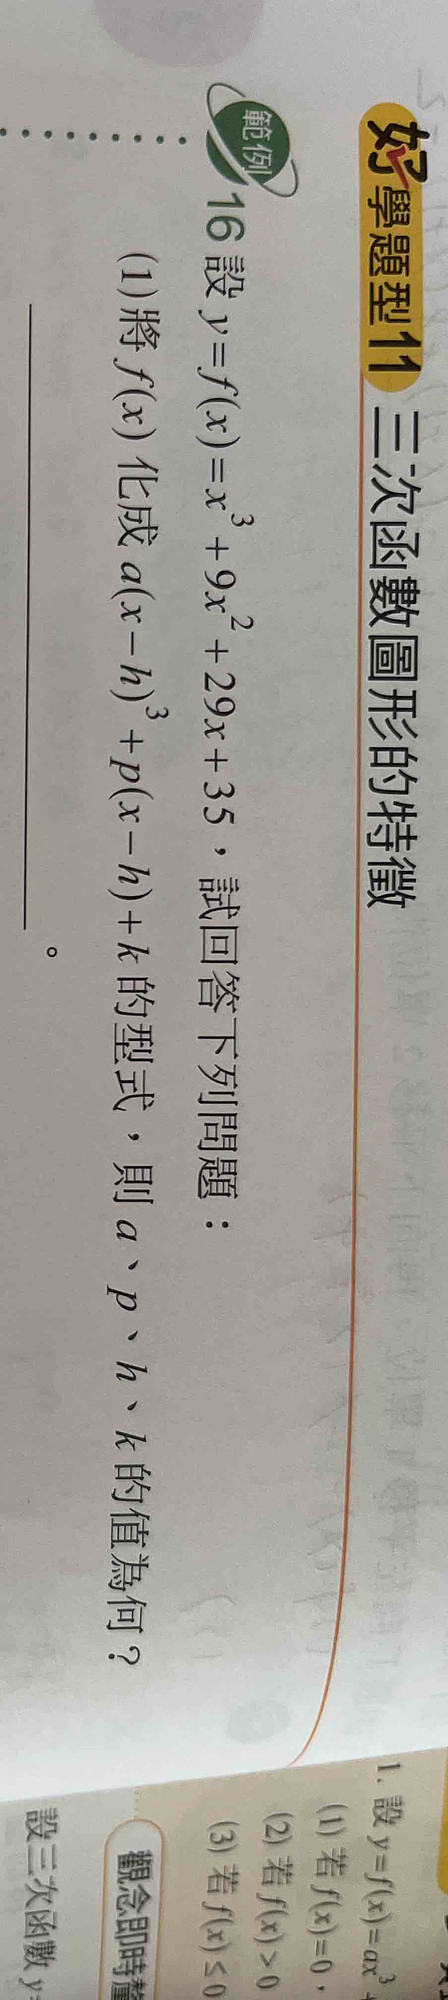 好學題型11 三次函數圖形的特徵
範例 16 設 y=f(x)=x³+9x²+29x+35，試回答下列問題：
(1)將 f(x) 化成 a(x−h)³+p(x−h)+k 的型式，則 a、p、h、k 的值為何？
。
1. 設 y=f(x)=ax³+
(1) 若 f(x)=0，
(2) 若 f(x)>0
(3) 若 f(x)≤0
觀念即時
設三次函數 y=